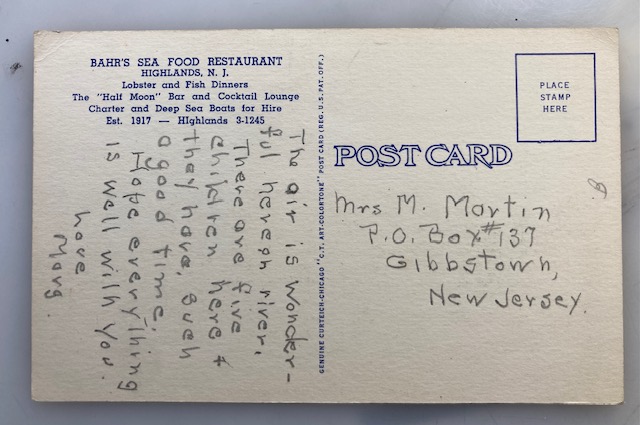 BAHR'S SEA FOOD RESTAURANT
HIGHLANDS, N. J.
Lobster and Fish Dinners
The "Half Moon" Bar and Cocktail Lounge
Charter and Deep Sea Boats for Hire
Est. 1917 — HIghlands 3-1245
The air is wonder-
ful here
river,
There are five
children here &
they have such
a good time.
Hope everything
is well with you.
Love
Marg.
GENUINE CURTEICH-CHICAGO "C.T. ART-COLORTONE" POST CARD (REG. U.S. PAT. OFF.)
PLACE
STAMP
HERE
POST CARD
Mrs M. Martin
P.O. Box #137
Gibbstown,
New Jersey.